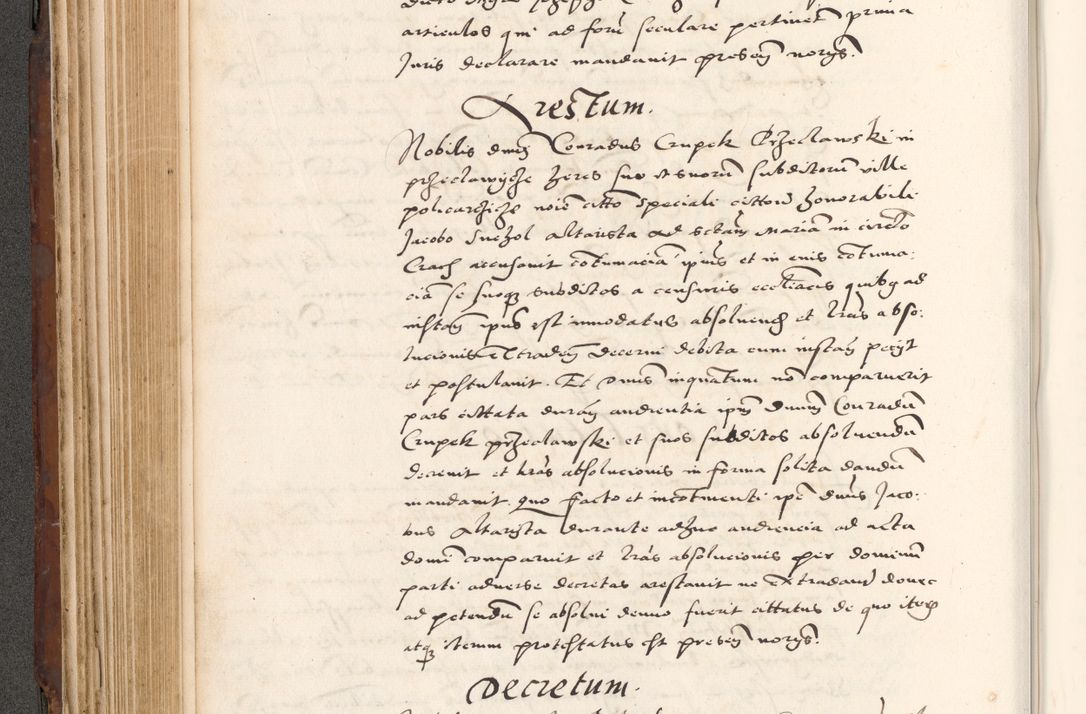 articulos qui ad forū seculare pertineñ prima
Juris declarare mandavit presentñ norijs.
Arestum.
Nobilis dnūs Conradus Crupek Przeclawski in
przeclawycze heres suo et suorum subditorū ville
policarzicze noiē citto speciali cittōn honorabili
Jacobo Suchol altarista ad sctām Mariā in circlo
Crach accusavit cōtumaciā ipius et in eius cōtuma:
ciā se suosq subditos a censuris ecclīacis quibg ad
instañ ipius est innodatus absolvendos et lrās abso:
lucionis extradeñ decerni debita cum instañ peciit
et postulavit. Et dnus inquantum nō comparuerit
pars cittata durañ audientia ipm dnum Conradū
Crupek przeclawski et suos subditos absolvendū
decrevit et lrās absolucionis in forma solita dandū
mandavit quo facto et incōtinenti ipē dnus Jaco:
bus Altarista durante adhuc audiencia ad acta
domi comparuit et lrās absolucionis per dominum
parti adverse decretas arestavit ne extradant donec
ad petendū se absolvi denuo fuerit cittatus de quo iterū
atq iterum protestatus est presentñ norijs.
Decretum.